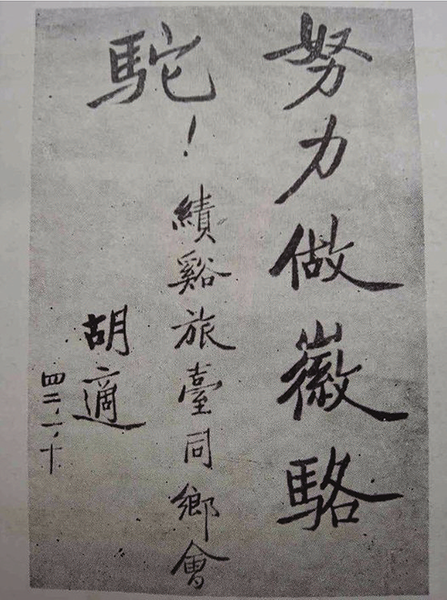 努力做徽駱
駝！
績谿旅臺同鄉會
胡適
四二、一、十